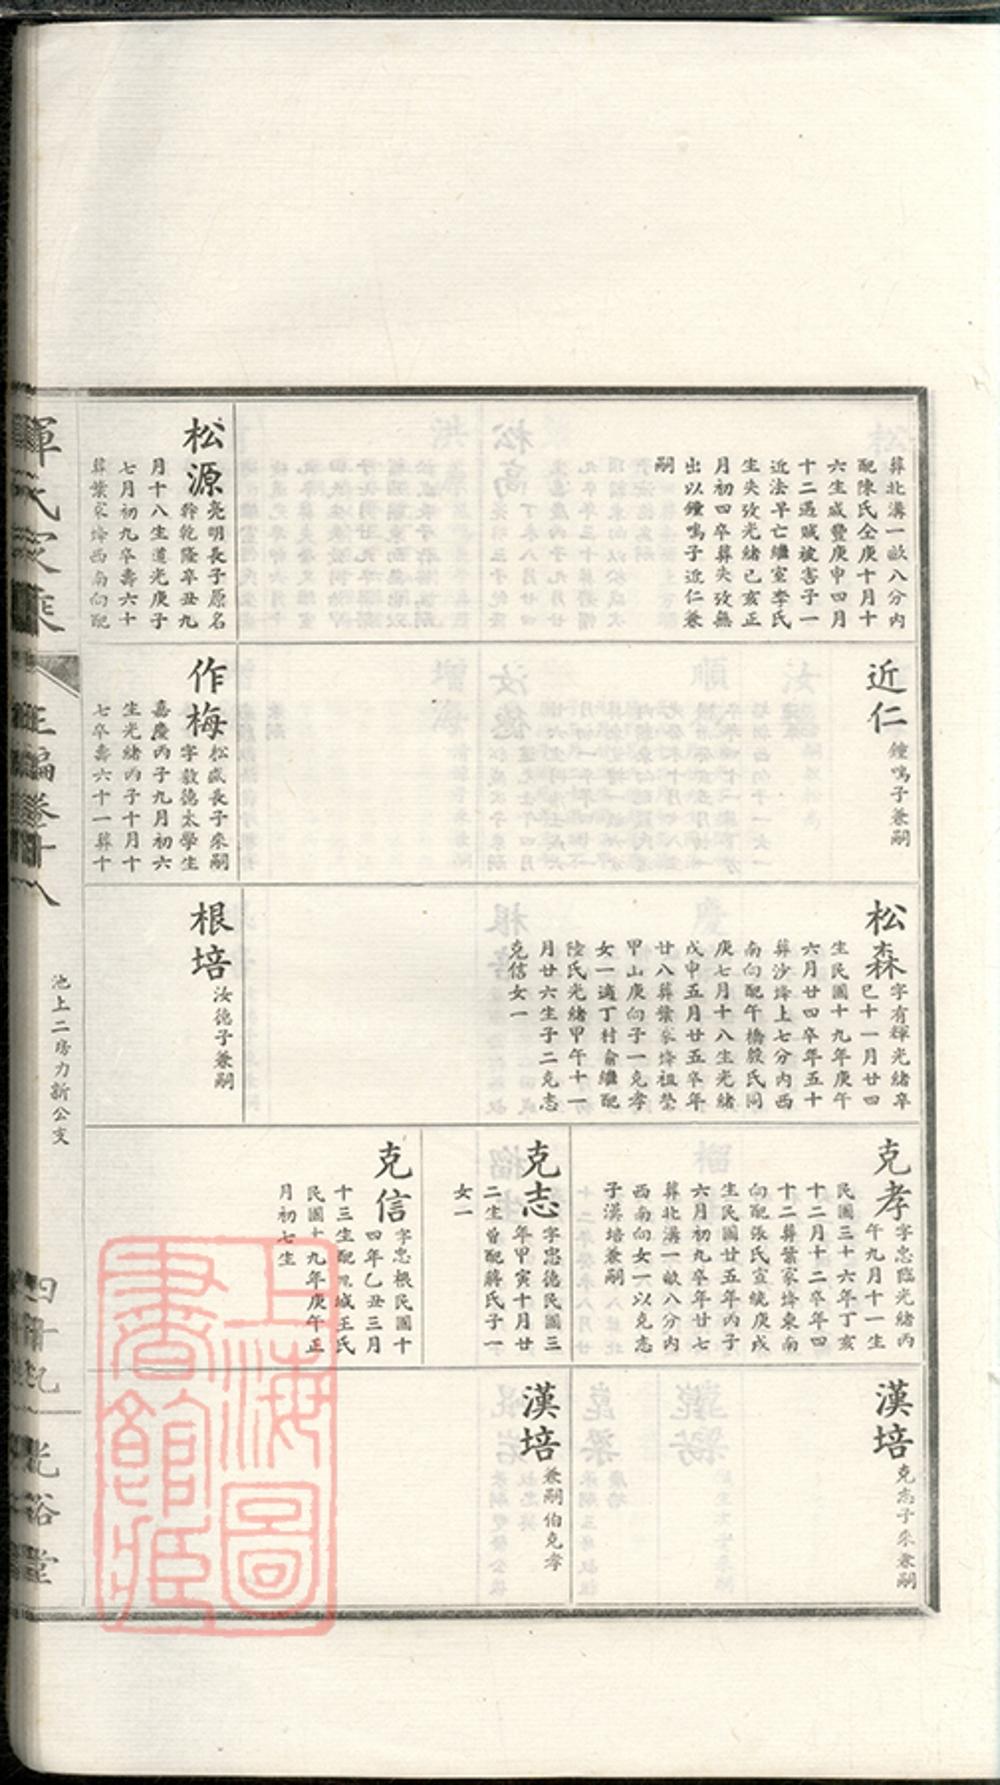 葬北溝一畝八分內
配陳氏仝庚十月十
六生咸豐庚申四月
十二遇賊被害子一
近法早亡繼室李氏
生失攷光緒己亥正
月初四卒葬失攷無
出以鐘鳴子近仁兼
嗣
松源
亮明長子原名
幹乾隆辛丑九
月十八生道光庚子
七月初九卒壽六十
葬葉家烽西南向配
近仁
鐘鳴子兼嗣
作梅
松歲長子來嗣
字敬德太學生
嘉慶丙子九月初六
生光緒丙子十月十
七卒壽六十一葬十
松森
字有輝光緒辛
巳十一月廿四
生民國十九年庚午
六月廿四卒年五十
葬沙烽上七分內西
南向配午橋殷氏同
庚七月十八生光緒
戊申五月廿五卒年
廿八葬葉家烽祖塋
甲山庚向子一克孝
女一適丁村俞繼配
陸氏光緒甲午十一
月廿六生子二克志
克信女一
根培
汝德子兼嗣
克孝
字忠臨光緒丙
午九月十一生
民國三十六年丁亥
十二月十二卒年四
十二葬葉家烽東南
向配張氏宣統庚戌
生民國廿五年丙子
六月初九卒年廿七
葬北溝一畝八分內
西南向女一以克志
子漢培兼嗣
克志
字忠德民國三
年甲寅十月廿
二生曾配蔣氏子一
女二
克信
字忠根民國十
四年乙丑三月
十三生配城王氏
民國十九年庚午正
月初七生
漢培
克志子來兼嗣
漢培
兼嗣伯克孝
惲氏家乘
三編卷十八
池上二房力新公支
四十紀
光裕堂
上海圖
書館藏